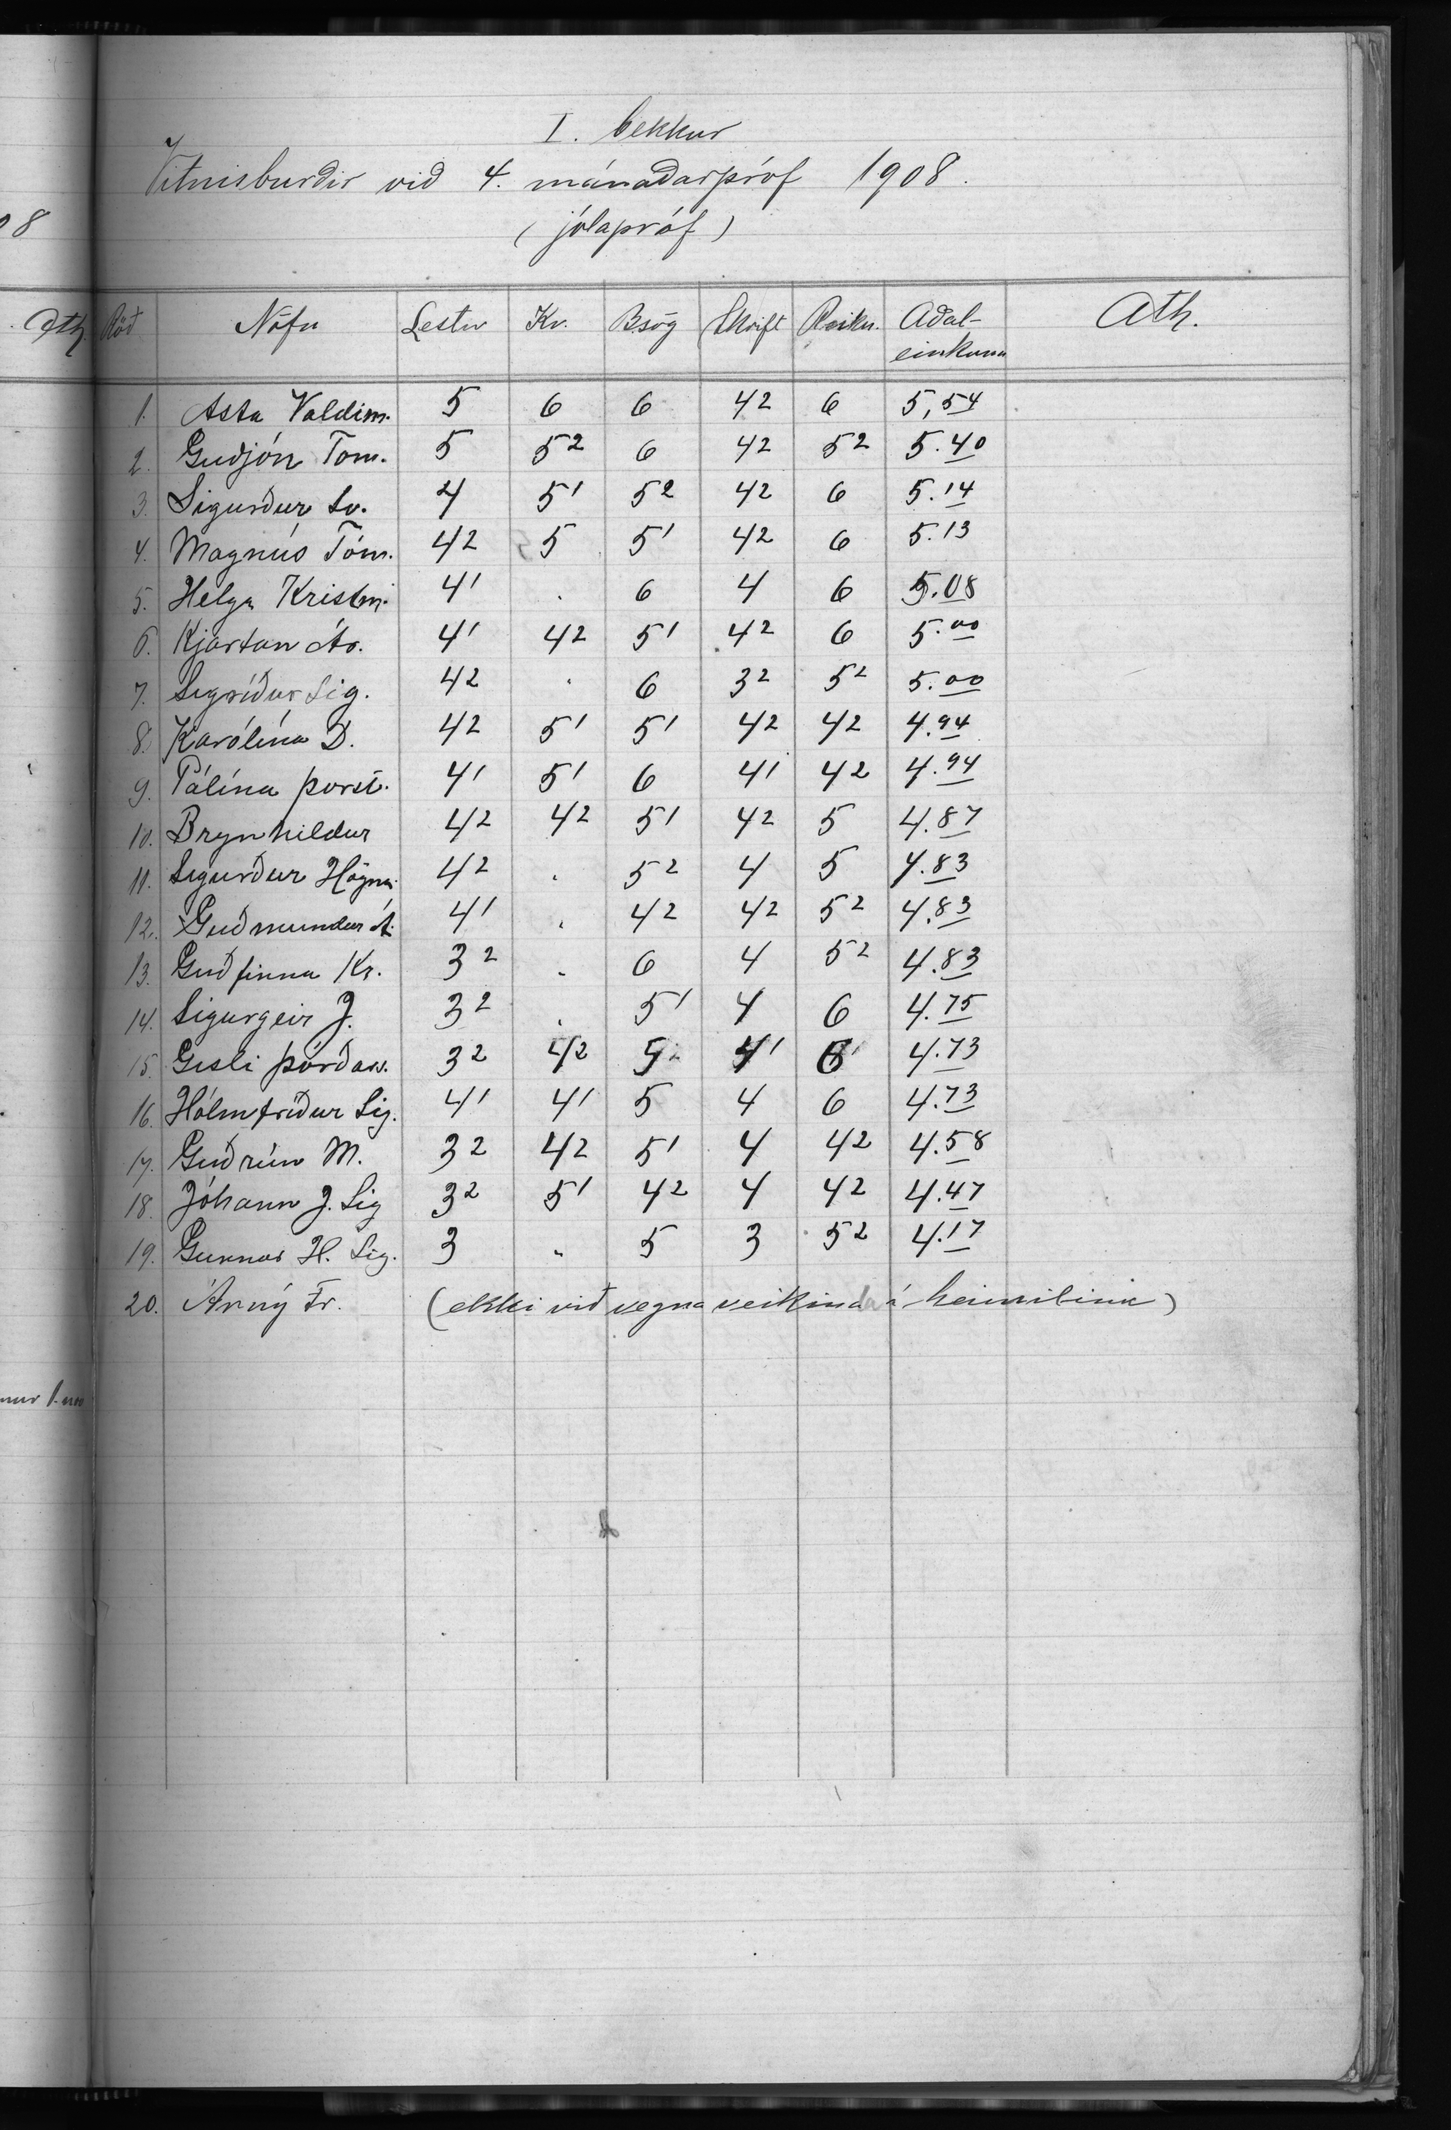 I. bekkur
Vitnisburðir við 4. mánaðarpróf 1908.
(jólapróf)
08
Ath. Röð Nöfn Lestur Kv. B.sög Skrift Reikn. Aðal-einkunn Ath.
1. Asta Valdim. 5 6 6 4² 6 5,54
2. Guðjón Tom. 5 5² 6 4² 5² 5.40
3. Sigurður Sv. 4 5¹ 5² 4² 6 5.14
4. Magnús Tóm. 4² 5 5¹ 4² 6 5.13
5. Helga Kristm. 4¹ . 6 4 6 5.08
6. Kjartan Áv. 4¹ 4² 5¹ 4² 6 5.00
7. Sigríður Sig. 4² . 6 3² 5² 5.00
8. Karólína D. 4² 5¹ 5¹ 4² 4² 4.94
9. Pálína Þorst. 4¹ 5¹ 6 4¹ 4² 4.94
10. Brynhildur 4² 4² 5¹ 4² 5 4.87
11. Sigurður Högna. 4² . 5² 4 5 4.83
12. Guðmundur Á. 4¹ . 4² 4² 5² 4.83
13. Guðfinna Kr. 3² . 6 4 5² 4.83
14. Sigurgeir J. 3² . 5¹ 4 6 4.75
15. Gísli Þórðars. 3² 4² 5² 4¹ 6 4.73
16. Hólmfríður Sig. 4¹ 4¹ 5 4 6 4.73
17. Guðrún M. 3² 4² 5¹ 4 4² 4.58
18. Jóhann J. Sig 3² 5¹ 4² 4 4² 4.47
19. Gunnar H. Sig. 3 . 5 3 5² 4.17
20. Árný Fr. (ekki við vegna veikinda á heimilinu)